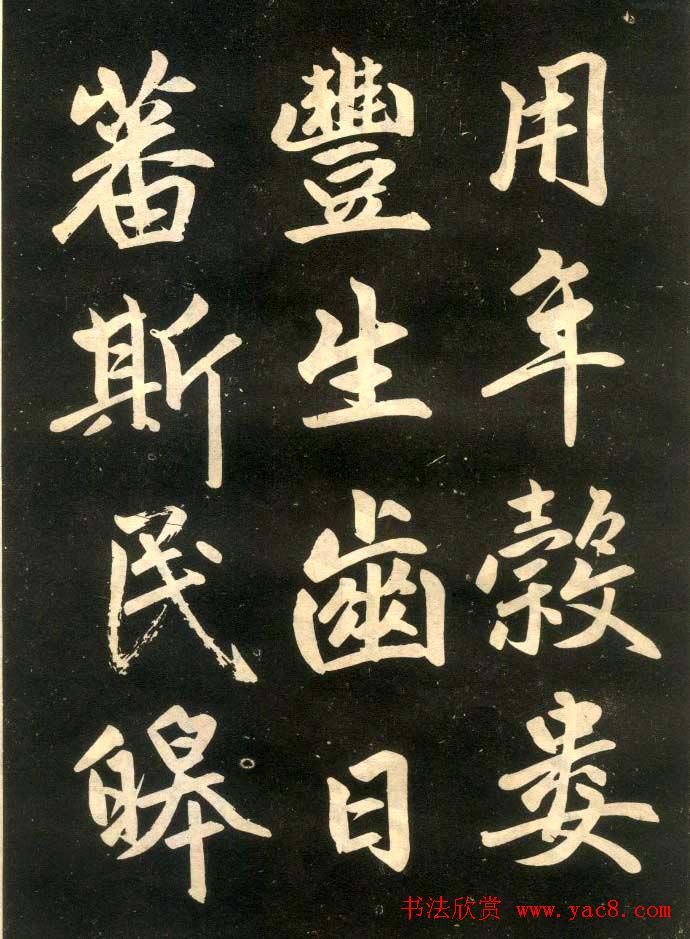 用年穀婁
豐生齒日
蕃斯民皞
书法欣赏 www.yac8.com